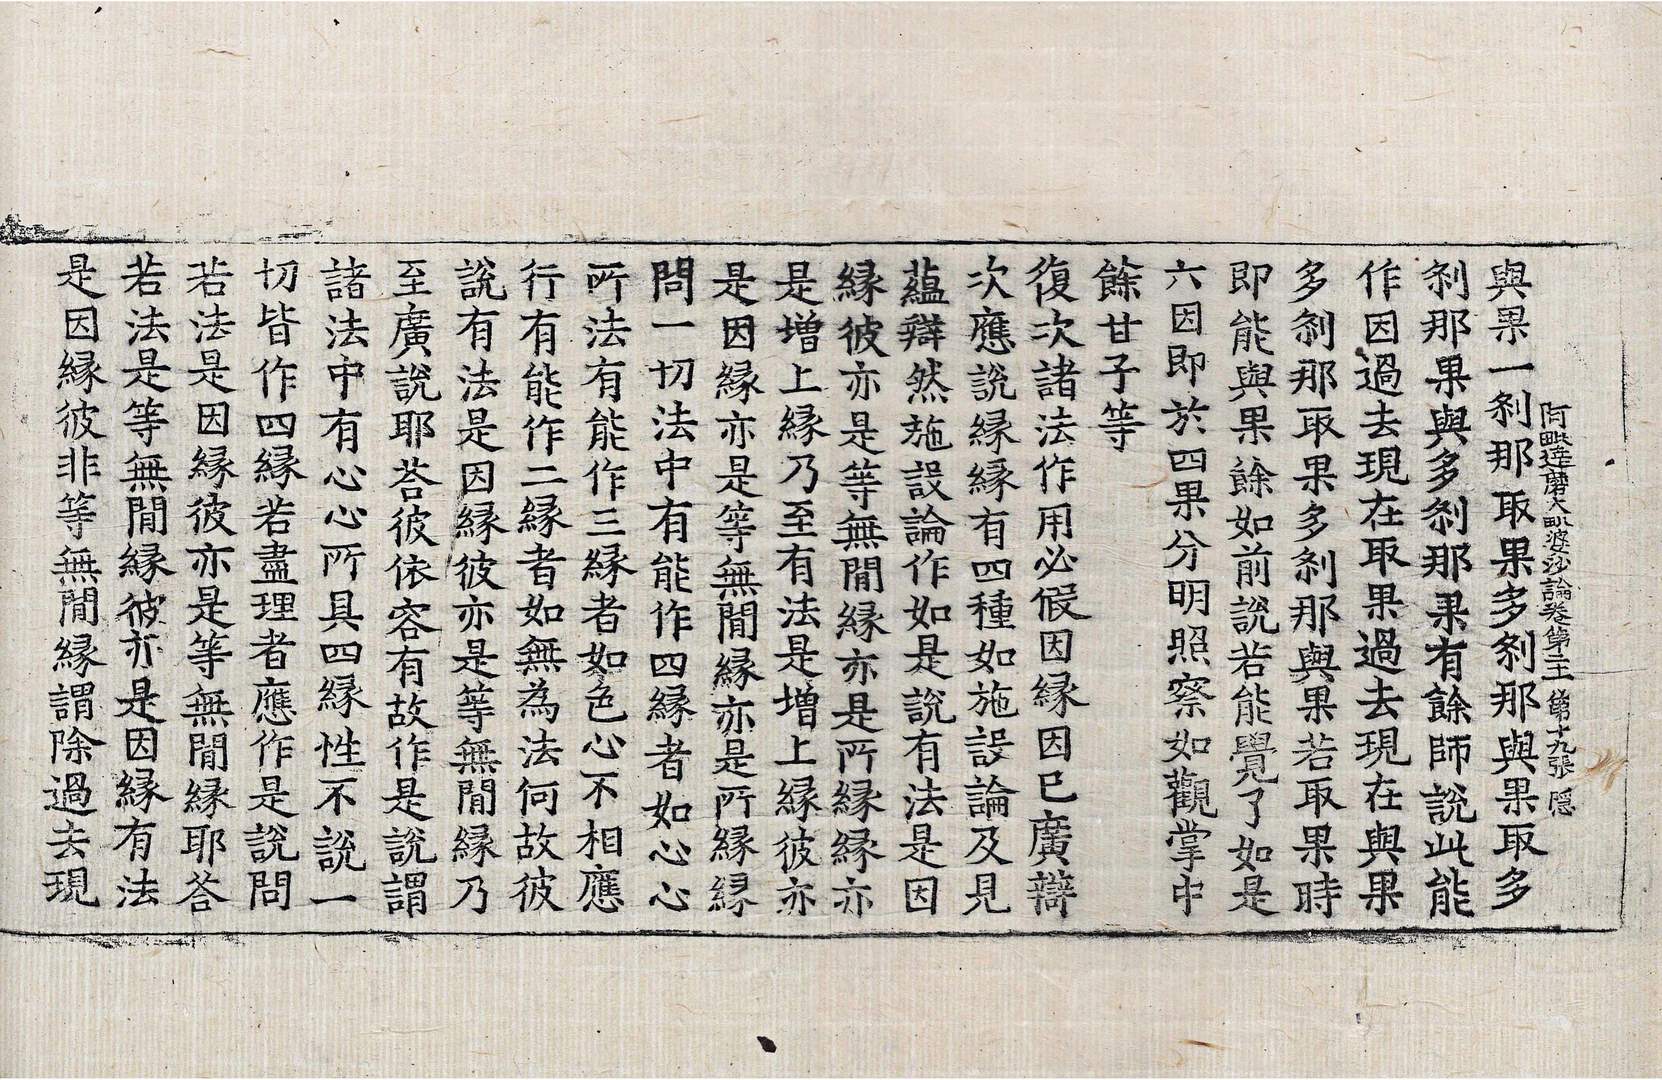 阿毗達磨大毗婆沙論卷第二十一 第十九張 隱
與果一刹那取果多刹那與果取多
刹那果與多刹那果有餘師說此能
作因過去現在取果過去現在與果
多刹那取果多刹那與果若取果時
即能與果餘如前說若能覺了如是
六因即於四果分明照察如觀掌中
餘甘子等
復次諸法作用必假因縁因已廣辯
次應說縁縁有四種如施設論及見
蘊辯然施設論作如是說有法是因
縁彼亦是等無閒縁亦是所縁縁亦
是增上縁乃至有法是增上縁彼亦
是因縁亦是等無閒縁亦是所縁縁
問一切法中有能作四縁者如心心
所法有能作三縁者如色心不相應
行有能作二縁者如無為法何故彼
說有法是因縁彼亦是等無閒縁乃
至廣說耶荅彼依容有故作是說謂
諸法中有心心所具四縁性不說一
切皆作四縁若盡理者應作是說問
若法是因縁彼亦是等無閒縁耶荅
若法是等無閒縁彼亦是因縁有法
是因縁彼非等無閒縁謂除過去現